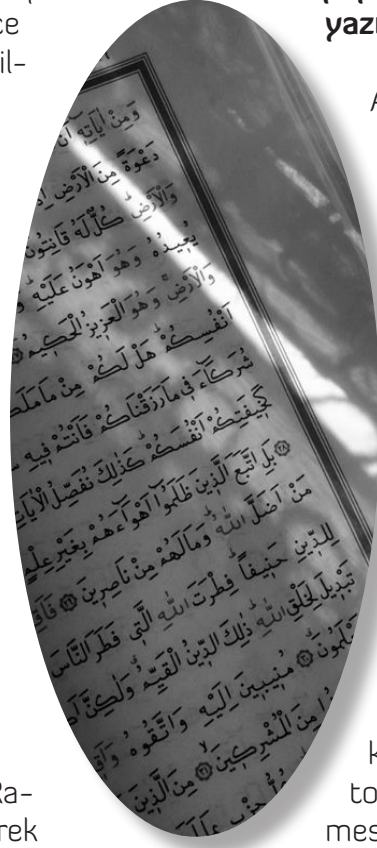 ce
il-
yazı
وَمِنْ اٰيَاتِهٖٓ اَنْ
دَعْوَةً مِنَ الْاَرْضِ
وَالْاَرْضِ كُلٌّ لَهُ قَانِتُونَ
يُعِيدُهُ وَهُوَ اَهْوَنُ عَلَيْهِ
وَالْاَرْضِ وَهُوَ الْعَزِيزُ الْحَكِيمُ
اَنْفُسِكُمْ هَلْ لَكُمْ مِنْ مَا مَلَكَ
شُرَكَٓاءَ فِي مَا رَزَقْنَاكُمْ فَاَنْتُمْ فِيهِ
كَخِيفَتِكُمْ اَنْفُسَكُمْ كَذٰلِكَ نُفَصِّلُ الْاٰيَاتِ
٢٨ بَلِ اتَّبَعَ الَّذِينَ ظَلَمُٓوا اَهْوَٓاءَهُمْ بِغَيْرِ عِلْمٍ
مَنْ اَضَلَّ اللّٰهُ وَمَا لَهُمْ مِنْ نَاصِرِينَ ٢٩ فَاَقِ
لِلدِّينِ حَنِيفاً فِطْرَتَ اللّٰهِ الَّتِي فَطَرَ النَّاسَ
تَبْدِيلَ لِخَلْقِ اللّٰهِ ذٰلِكَ الدِّينُ الْقَيِّمُ وَلٰكِنَّ
مُنِيبِينَ اِلَيْهِ وَاتَّقُوهُ
مِنَ الْمُشْرِكِينَ ٣١ مِنَ الَّذِينَ
حِزْبٍ
Ra-
rek
k
to
mes